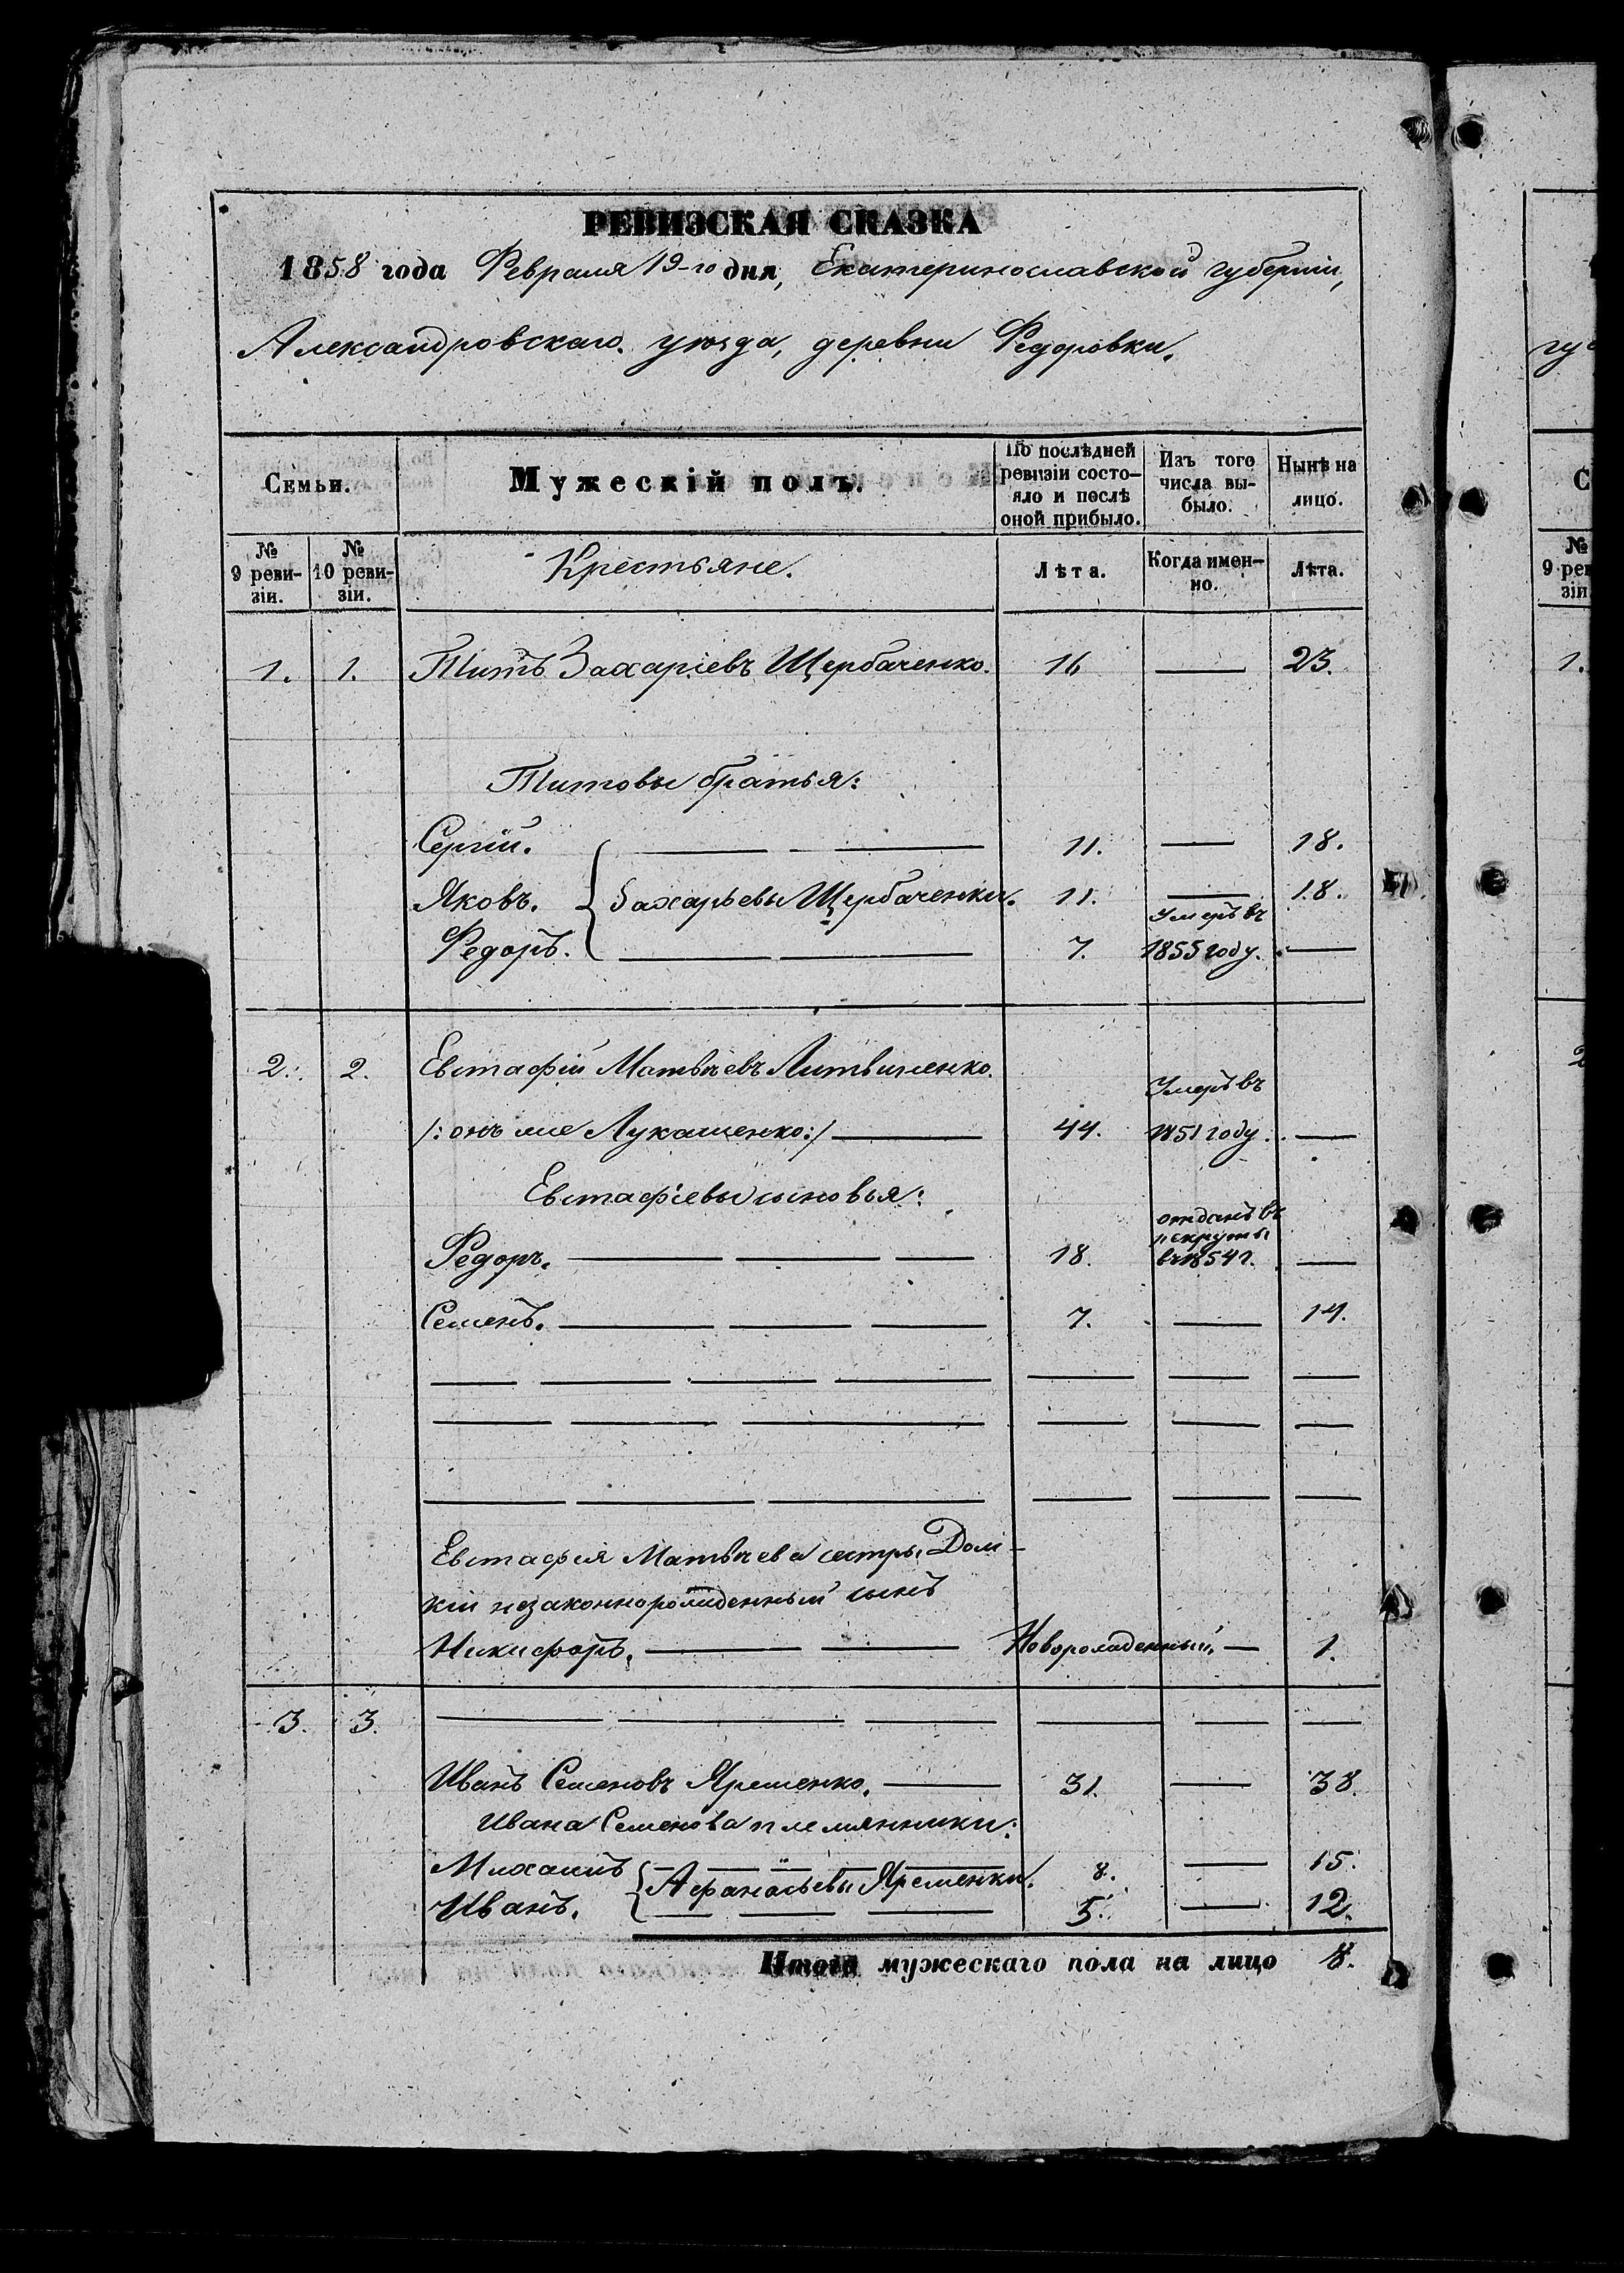 РЕВИЗСКАЯ СКАЗКА
1858 года Февраля 19-го дня, Екатеринославской губерніи,
Александровскаго уѣзда, деревни Федоровки.
Семьи.
Мужескій полъ.
По послѣдней ревизіи состо-яло и послѣ оной прибыло.
Изъ того числа вы-было.
Нынѣ на лицо.
№ 9 реви-зіи.
№ 10 реви-зіи.
Крестьяне.
Лѣта.
Когда имен-но.
Лѣта.
1. 1. Титъ Захаріевъ Щербаченко. 16 — 23.
Титовы братья:
Сергій. — — 11. — 18.
Яковъ. Захарьевы Щербаченки. 11. — 18.
Умеръ въ
Федоръ. — — 7. 1855 году. —
2. 2. Евстафій Матвѣевъ Литвиненко.
Умеръ въ
/: онъ же Лукашенко :/ — 44. 1851 году. —
Евстафіевы сыновья:
отданъ въ
рекруты
Федоръ. — — — 18. въ 1854 г. —
Семенъ. — — — 7. — 14.
Евстафія Матвѣева сестры Дом-
кіи незаконнорожденный сынъ
Никифоръ. — — Новорожденный. — 1.
3. 3. — — — — — —
Иванъ Семеновъ Яременко. — 31. — 38.
Ивана Семенова племянники:
Михаилъ 8. — 15.
Афанасьевы Яременки.
Иванъ. — — — 5. — 12.
Итого мужескаго пола на лицо 8.
1.
2
№
9 рев
зіи